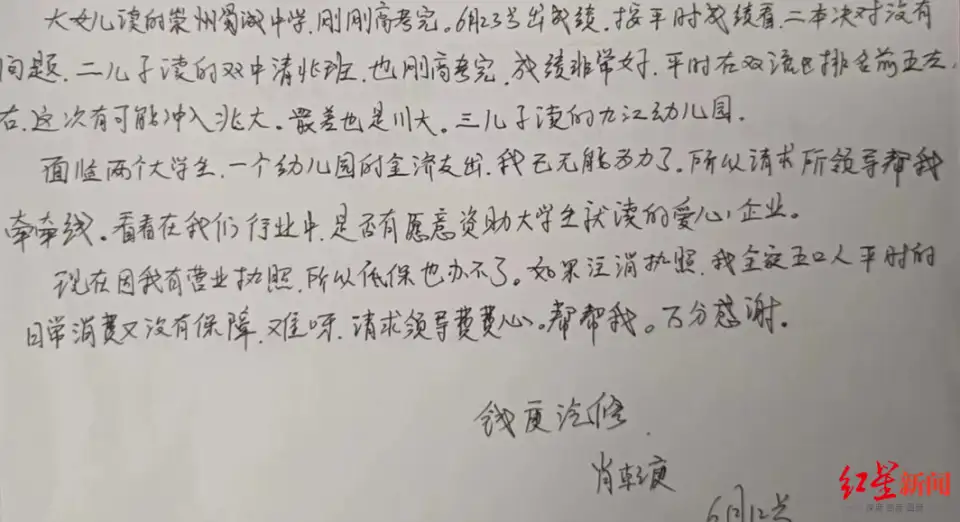 大女儿读的崇州蜀城中学,刚刚高考完。6月23号出成绩,按平时成绩看,二本决对没有
问题,二儿子读的双中清北班,也刚高考完,成绩非常好,平时在双流区排名前五左
右,这次有可能冲入北大。最差也是川大。三儿子读的九江幼儿园.
面临两个大学生,一个幼儿园的经济支出,我已无能为力了。所以请求所领导帮我
牵牵线。看看在我们行业中,是否有愿意资助大学生就读的爱心企业。
现在因我有营业执照,所以低保也办不了。如果注消执照,我全家五口人平时的
日常消费又没有保障,难呀,请求领导费费心。帮帮我。万分感谢。
汽修
肖
6月12号
红星新闻
深度 态度 温度